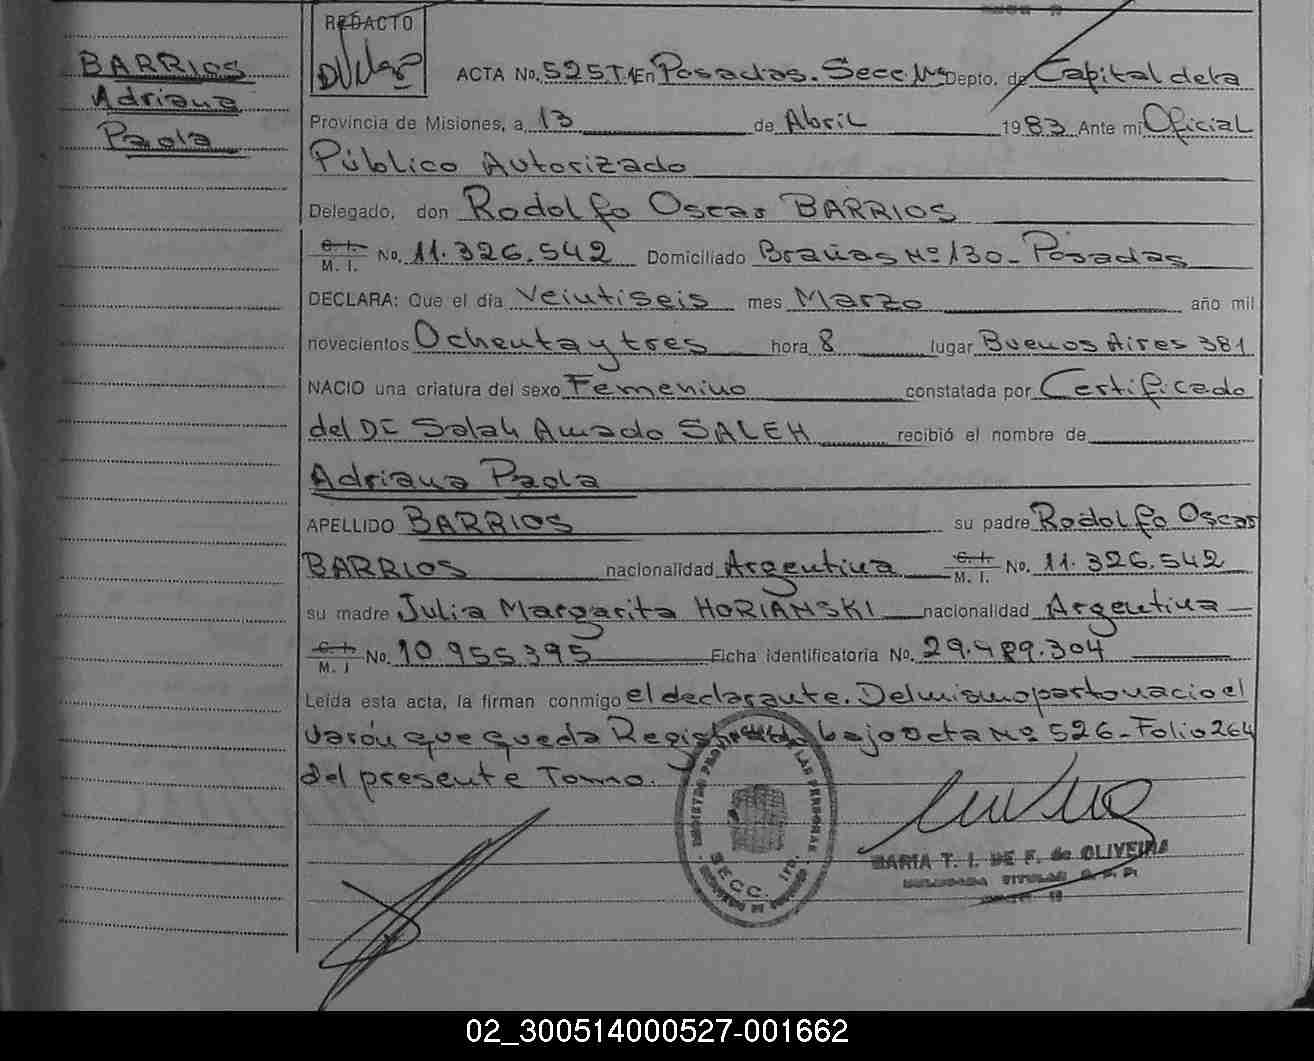 BARRIOS
Adriana
Paola
REDACTO
ACTA No. 525 T.1 En Posadas. Secc. Depto. de Capital de la
Provincia de Misiones, a 13 de Abril 1983 Ante mi Oficial
Público Autorizado
Delegado, don Rodolfo Oscar BARRIOS
C. I.
M. I. No. 11.326.542 Domiciliado Brañas Nº 130 - Posadas
DECLARA: Que el día Veintiseis mes Marzo año mil
novecientos Ochenta y tres hora 8 lugar Buenos Aires 381
NACIO una criatura del sexo Femenino constatada por Certificado
del Dr Salah Amado SALEH recibió el nombre de
Adriana Paola
APELLIDO BARRIOS su padre Rodolfo Oscar
BARRIOS nacionalidad Argentina C. I. M. I. No. 11.326.542
su madre Julia Margarita HORIANSKI nacionalidad Argentina
C. I. M. I No. 10 955 395 Ficha identificatoria No. 29.489.304
Leída esta acta, la firman conmigo el declarante. Del mismo parto nacio el
varón que queda Registrado bajo acta Nº 526 - Folio 264
del presente Tomo.
REGISTRO PROVINCIAL DE LAS PERSONAS
SECC. 1ra.
MARIA T. I. DE F. de OLIVEIRA
TITULAR
02_300514000527-001662